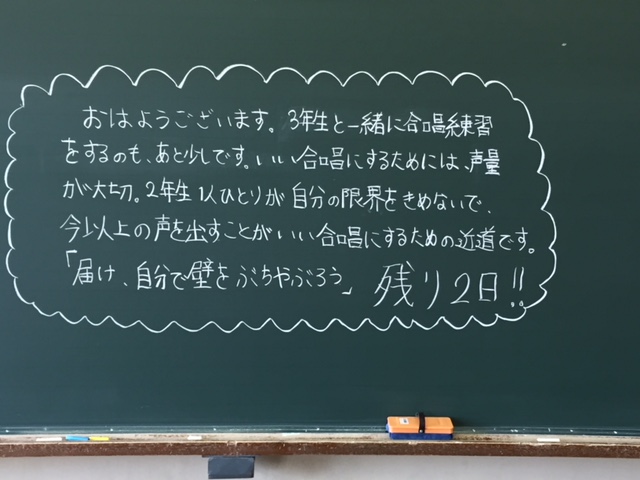 おはようございます。3年生と一緒に合唱練習
をするのも、あと少しです。いい合唱にするためには、声量
が大切。2年生1人ひとりが自分の限界をきめないで、
今以上の声を出すことがいい合唱にするための近道です。
「届け、自分で壁をぶちやぶろう」 残り2日!!